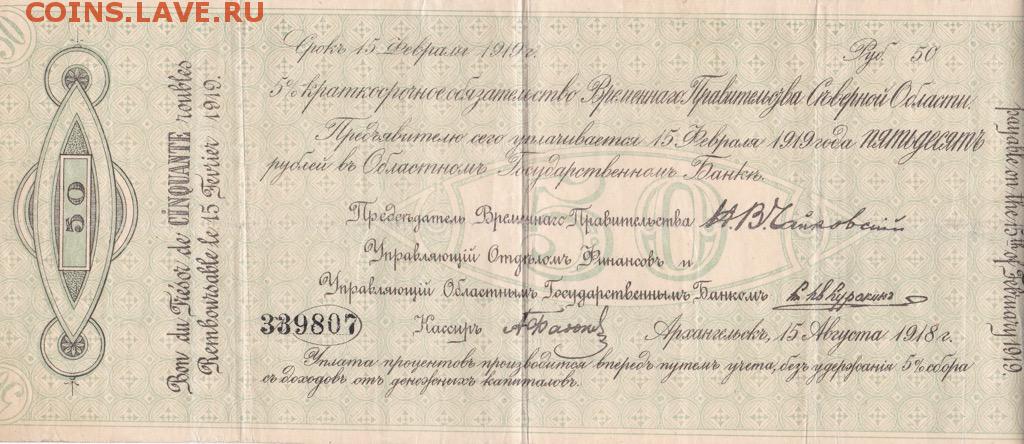 COINS.LAVE.RU
Срокъ 15 Февраля 1919 г.
Руб. 50
5% краткосрочное обязательство Временнаго Правительства Сѣверной Области.
Предъявителю сего уплачивается 15 Февраля 1919 года пятьдесятъ
рублей въ Областномъ Государственномъ Банкѣ.
Предсѣдатель Временнаго Правительства Н.В. Чайковскій
Управляющій Отдѣломъ Финансовъ и
Управляющій Областнымъ Государственнымъ Банкомъ Куракинъ
339807
Кассиръ
Архангельскъ, 15 Августа 1918 г.
Уплата процентовъ производится впередъ путемъ учета, безъ удержанія 5% сбора
съ доходовъ отъ денежныхъ капиталовъ.
Bon du Trésor de CINQUANTE roubles
Remboursable le 15 Février 1919.
50
50
payable on the 15th of February 1919.